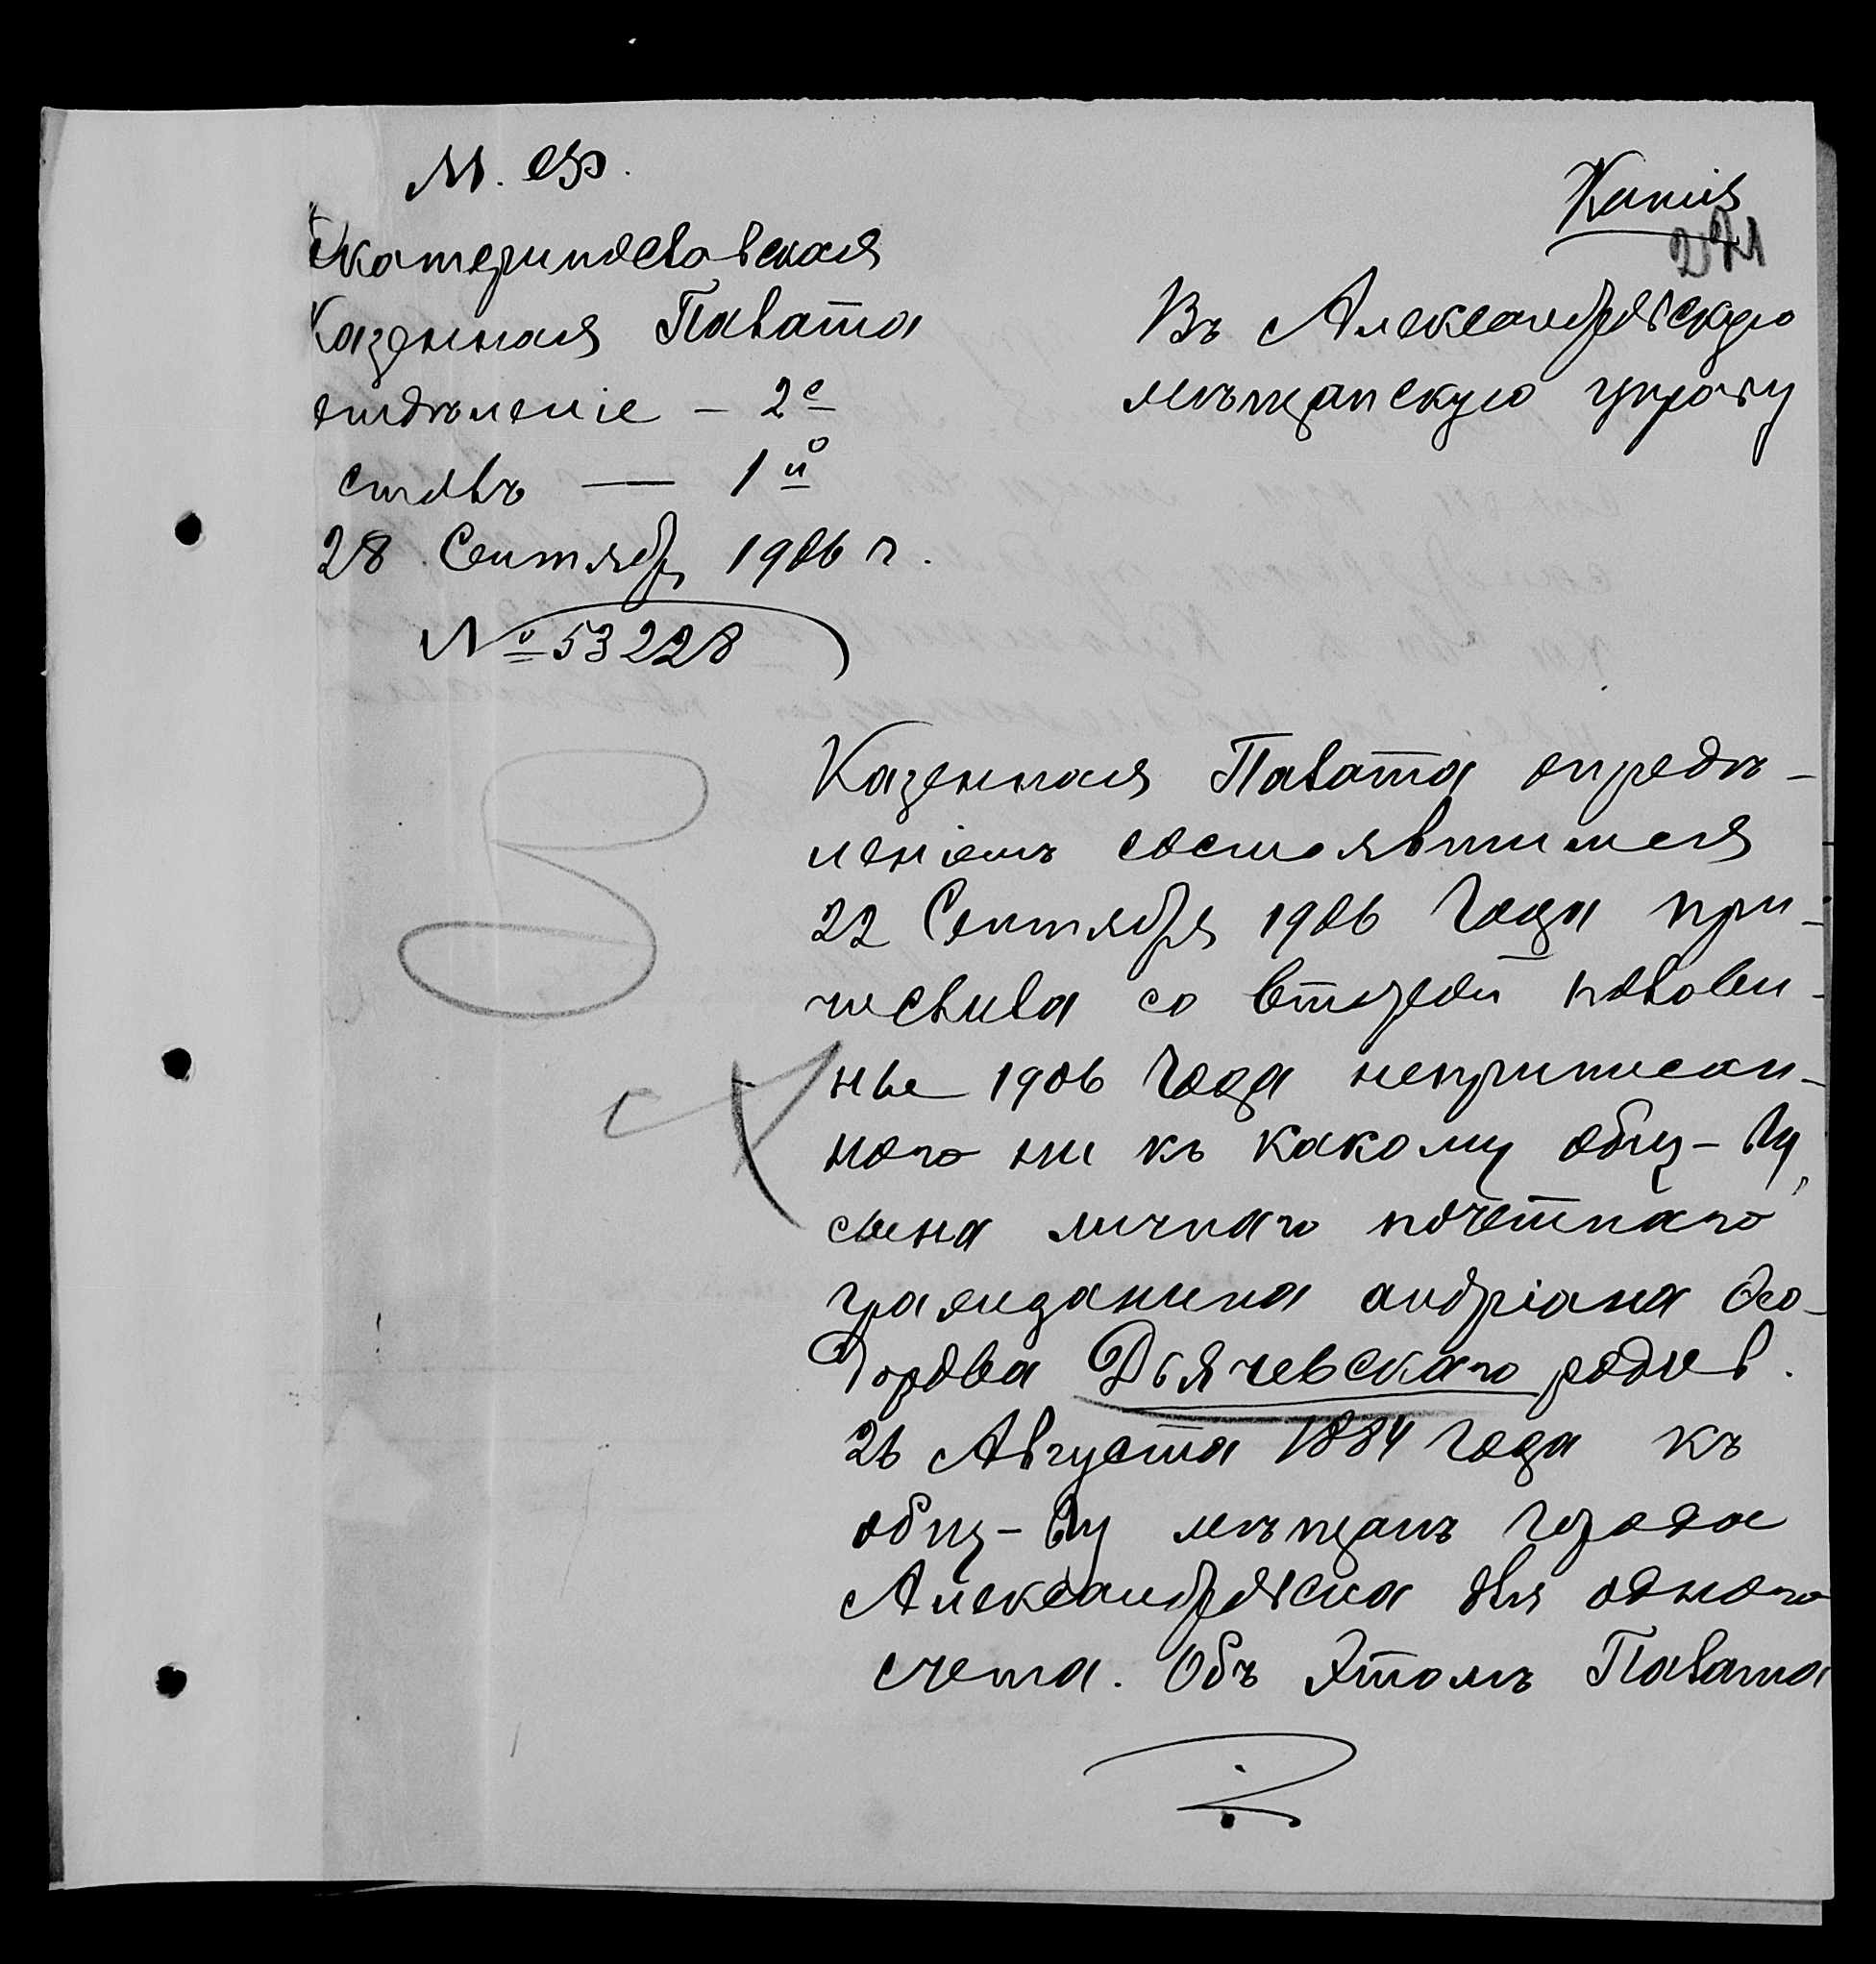 М. Ф.
Копія
271
Екатеринославская
Казенная Палата
отдѣленіе – 2е
столъ — 1й
28 Сентябр 1906 г.
№ 53228
Въ Александровскую
мѣщанскую управу
Казенная Палата опредѣ-
леніемъ состоявшимся
22 Сентября 1906 года при-
числила со второй полови-
ны 1906 года неприписан-
ного ни къ какому общ-ву,
сына личнаго почетнаго
гражданина Андріана Фео-
дорова Дьячевскаго родив.
26 Августа 1884 года къ
общ-ву мѣщанъ города
Александровска для одного
счета. Объ этомъ Палата